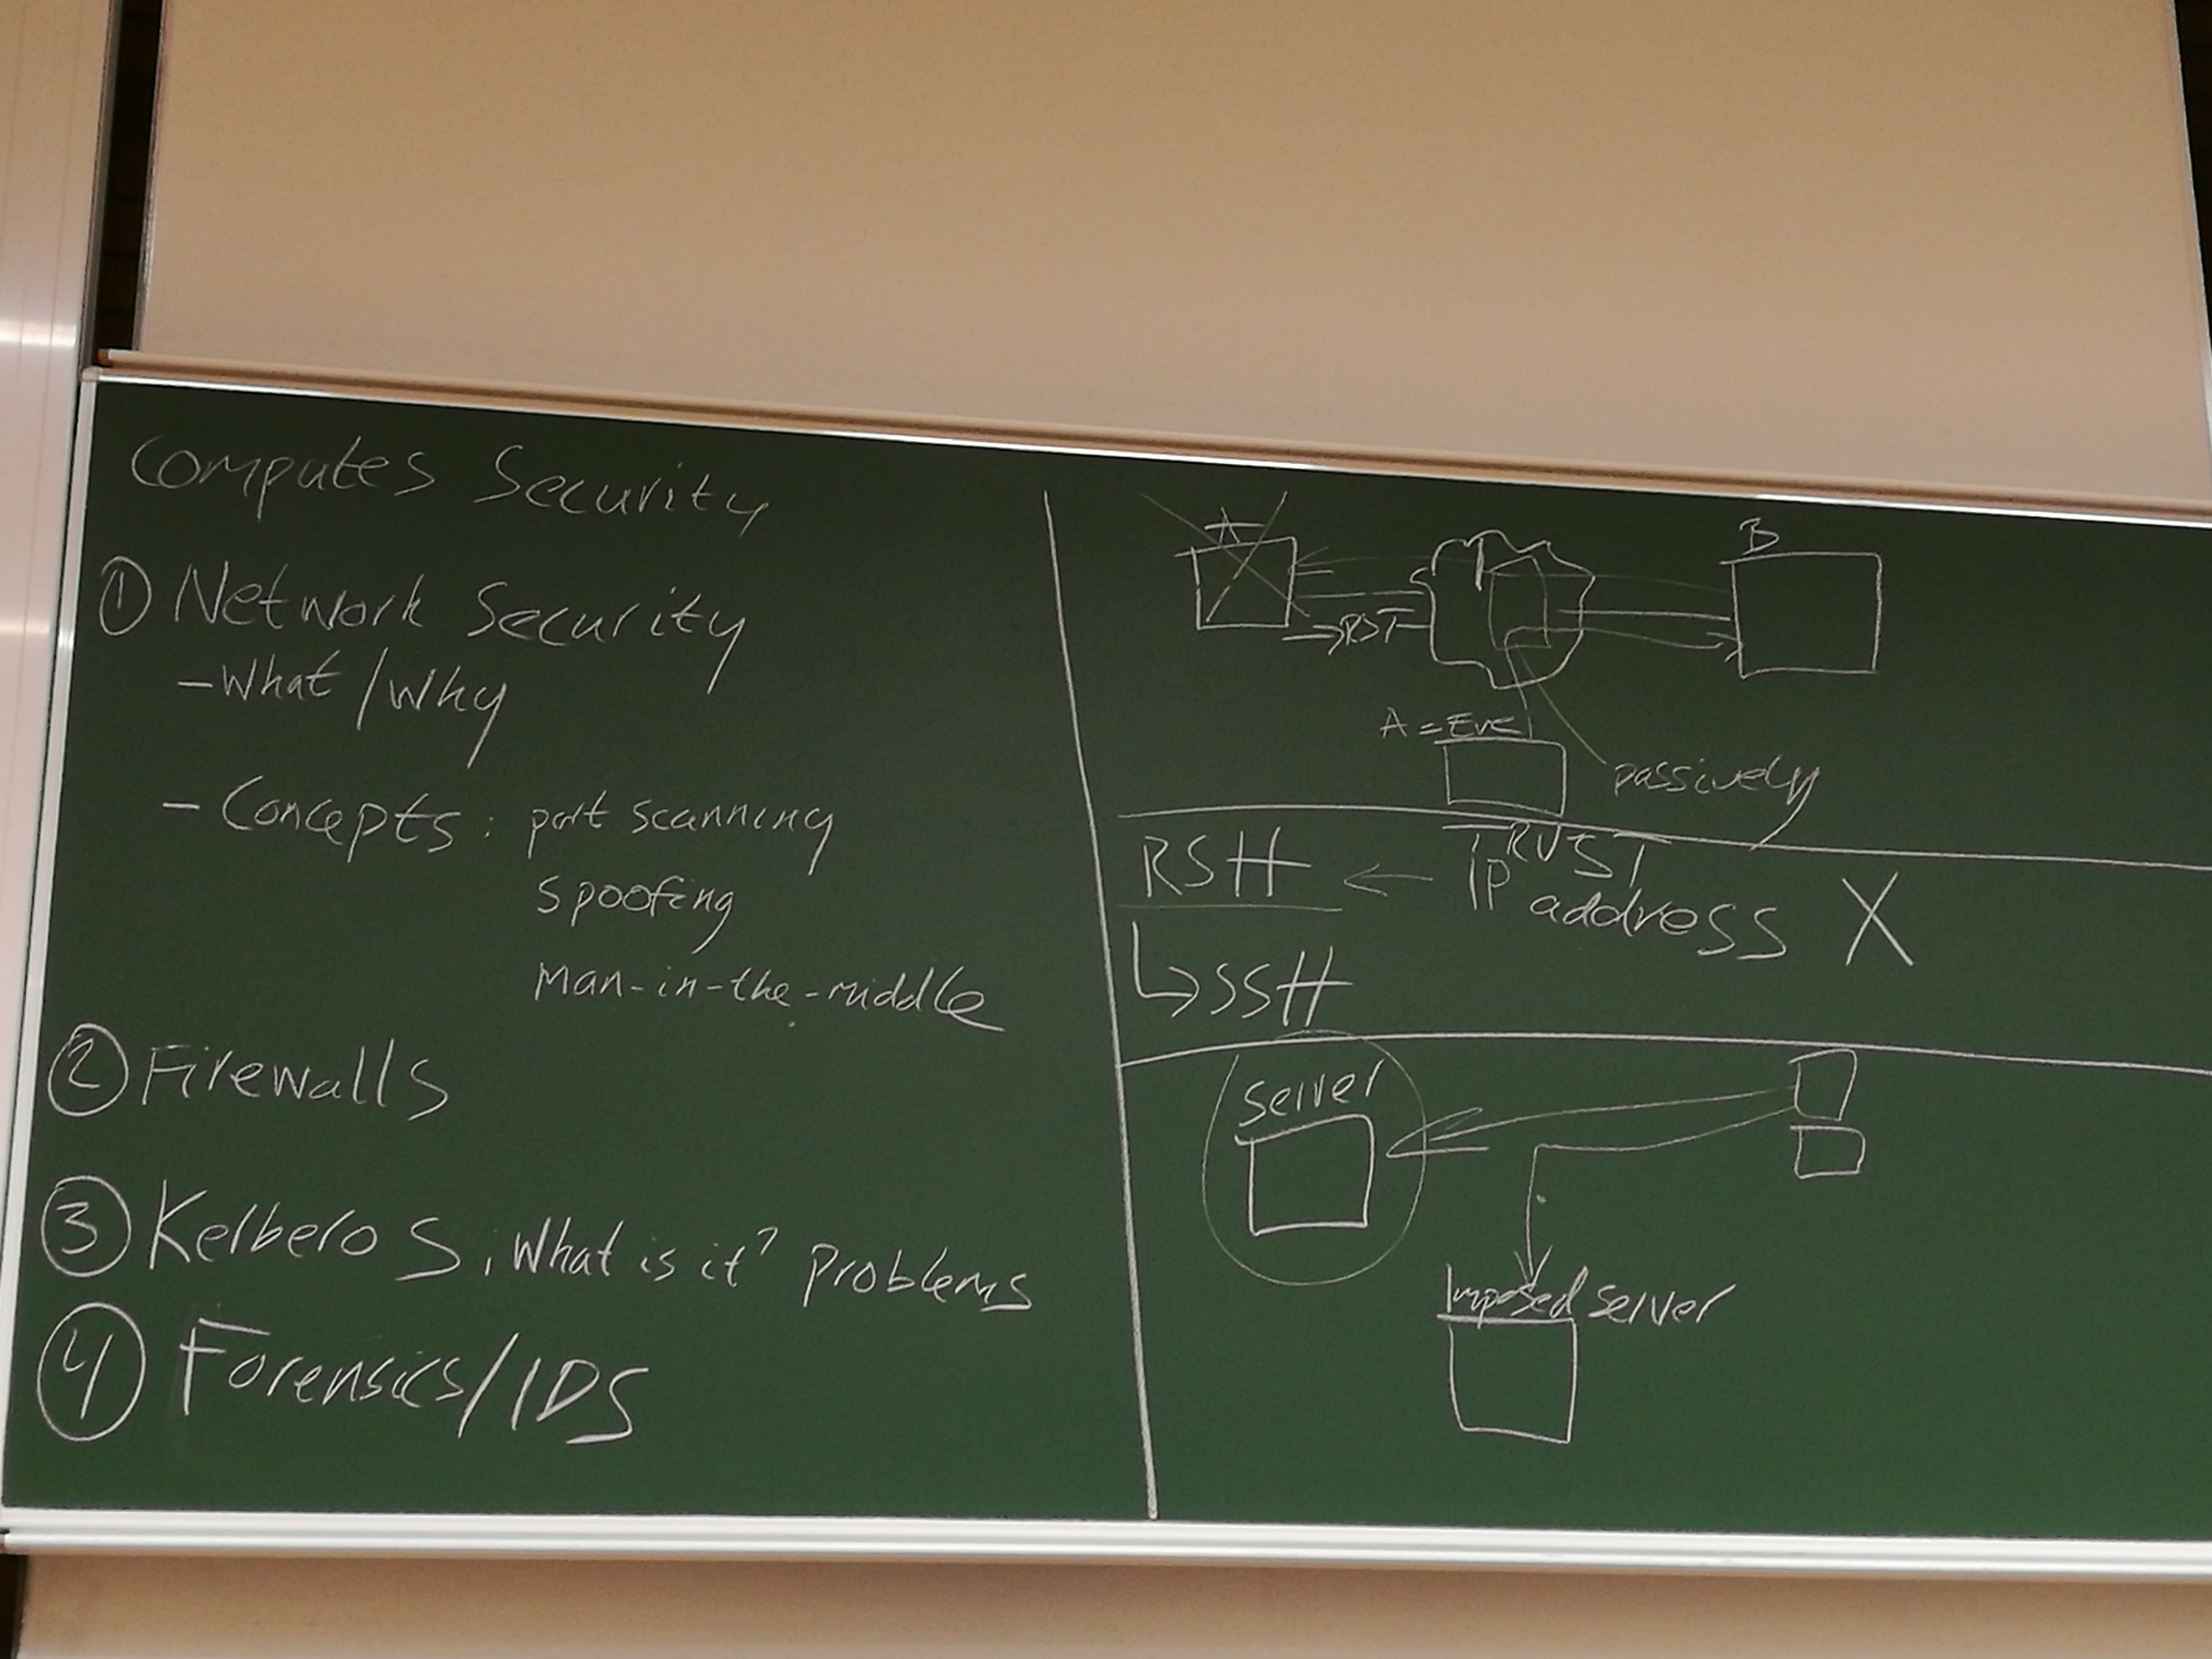 Computer Security
① Network Security
- What / Why
- Concepts: port scanning
spoofing
man-in-the-middle
② Firewalls
③ Kerberos, What is it? Problems
④ Forensics/IDS
A
B
→RST
A = Eve
passively
RSH ← TRUST
IP address X
↳ SSH
server
Imposed server